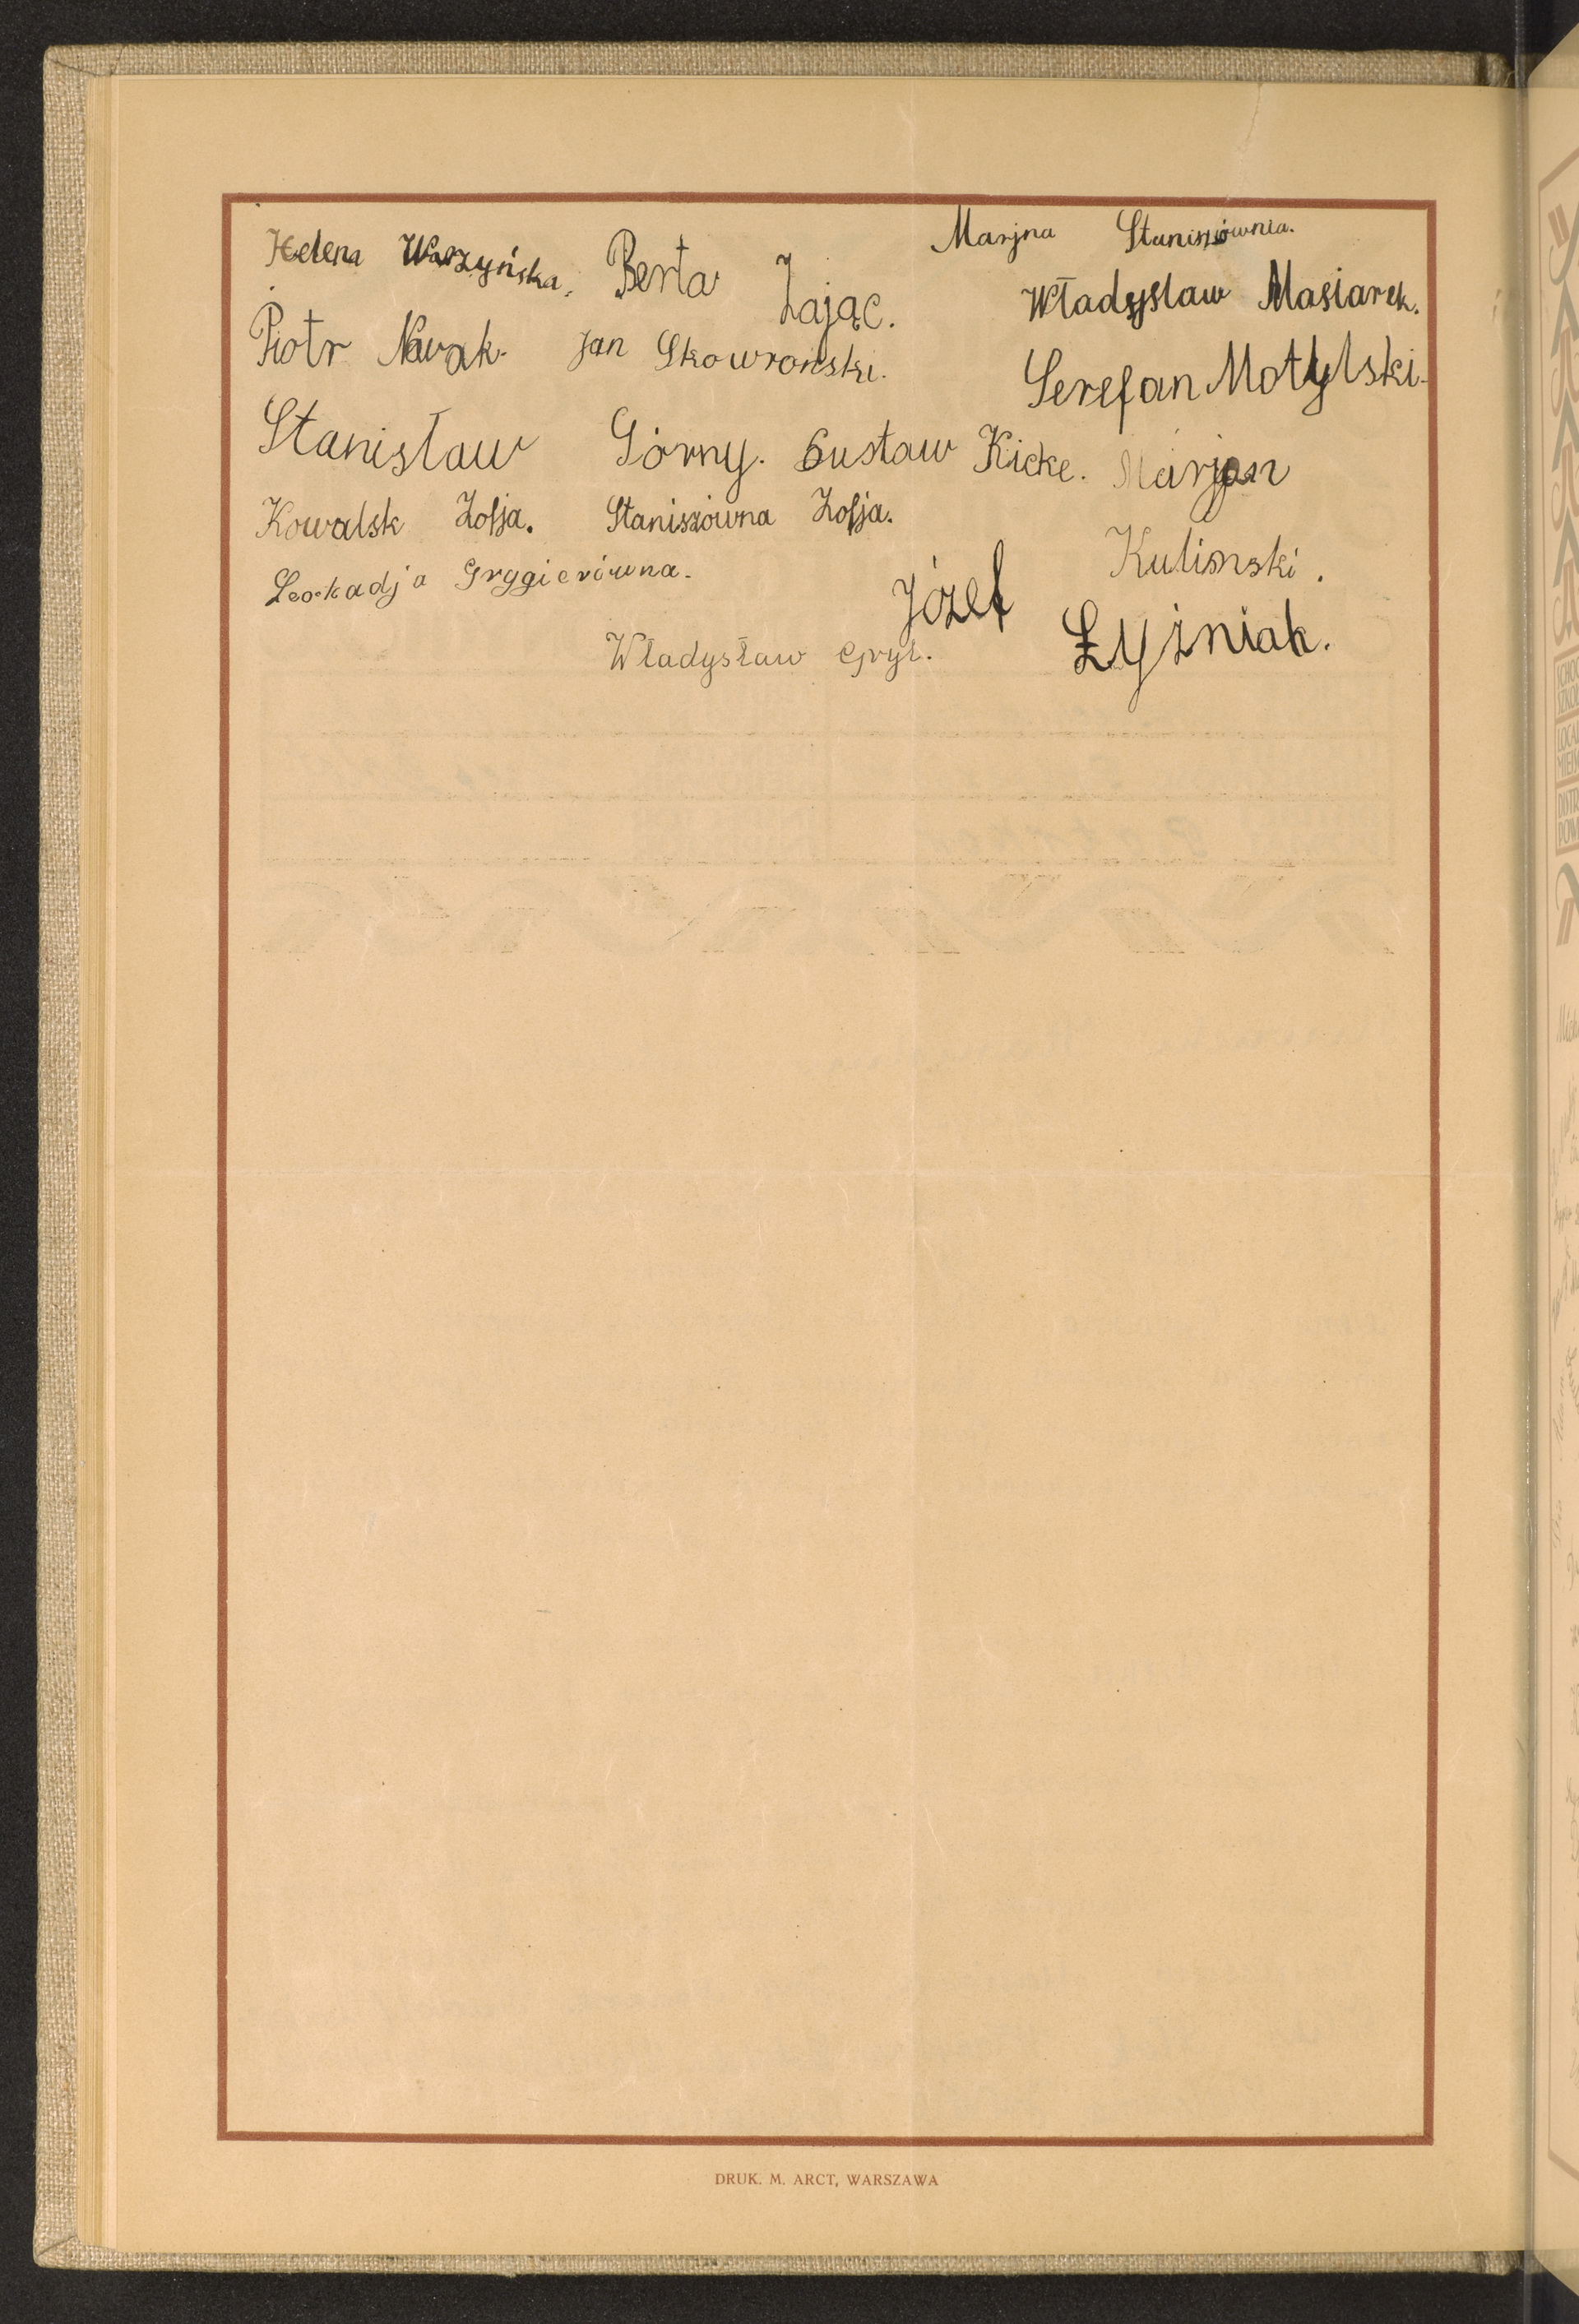 Helena Waszyńska. Berta Zając. Marjna Staniszównia.
Władysław Masiarek.
Piotr Nowak. Jan Skowroński.
Serefan Motylski.
Stanisław Górny. Gustaw Kicke. Marjan
Kowalsk Zofja. Staniszówna Zofja.
Kulinski.
Leokadja Grygierówna.
Józef
Władysław Gryś. Łyżniak.
DRUK. M. ARCT, WARSZAWA